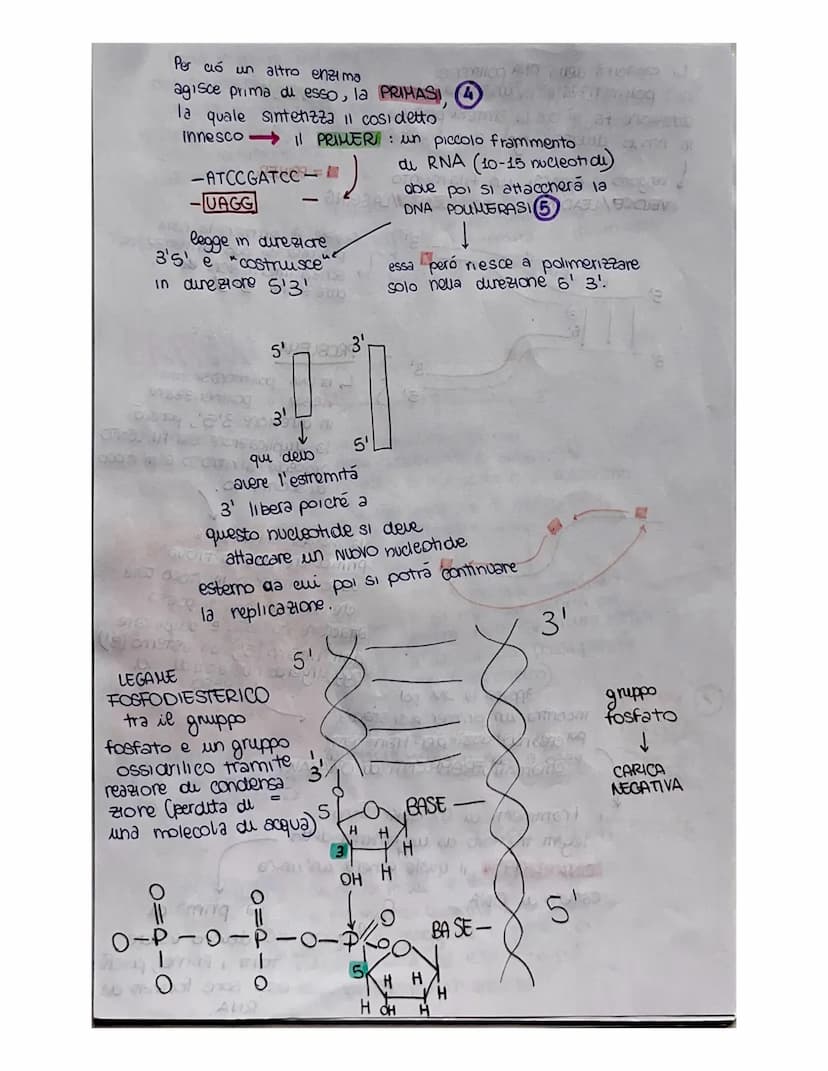 Per ció un altro enzima
agisce prima di esso, la PRIMASI, 4
la quale sintetizza il cosidetto
innesco → il PRIMER : un piccolo frammento
di RNA (10-15 nucleotidi)
dove poi si attaccherá la
DNA POLIMERASI 5
-ATCCGATCC-
-UAGG -
legge in direzione
3'5' e "costruisce"
in direzione 5'3'
essa peró riesce a polimerizzare
solo nella direzione 5' 3'.
5' 3'
3' 5'
qui devo
avere l'estremitá
3' libera poiché a
questo nucleotide si deve
attaccare un NUOVO nucleotide
esterno da cui poi si potrá continuare
la replicazione.
5' 3'
LEGAME
FOSFODIESTERICO
tra il gruppo
fosfato e un gruppo
ossidrilico tramite
reazione di condensa
zione (perdita di =
una molecola di acqua)
gruppo
fosfato
↓
CARICA
NEGATIVA
3'
O
5 O BASE
H H
3 H
OH H
5'
O O O
O-P-O-P-O-P-O O BASE-
O O
5
H H H
H OH H